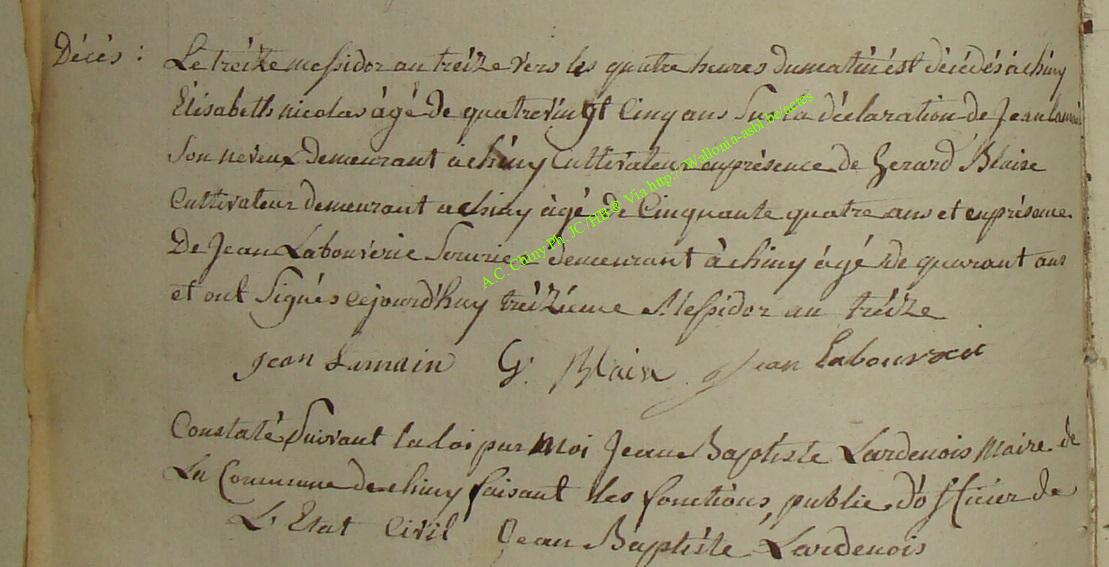 Décès :
Le treize messidor an treize vers les quatre heures du matin est décédés à chiny
Elisabeth nicolas âgé de quatrevingt Cinq ans Sur la déclaration de Jean Lamain
Son neveux demeurant à chiny Cultivateur en présence de Gerard Blaise
Cultivateur demeurant a chiny âgé de Cinquante quatre ans et en présance
De Jean Labouverie demeurant à chiny âgé de quarant ans
et ont Signés cejourd'huy treizieme Messidor an treize
Jean Lamain G. Blaise Jean Labouverie
Constaté Suivant la loi par Moi Jean Baptiste Lardenois Maire de
La Commune de chiny faisant les fonctions, public d'officier de
L'Etat Civil Jean Baptiste Lardenois
A.C. Chiny Ph. JC /HB & Via http://Wallonia-asbl.be/actes